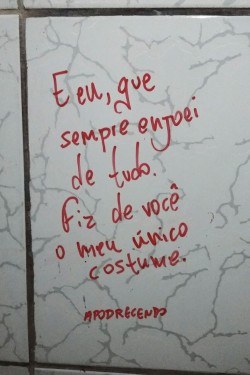 E eu, que
sempre enjoei
de tudo.
fiz de você
o meu único
costume.
APODRECENDO